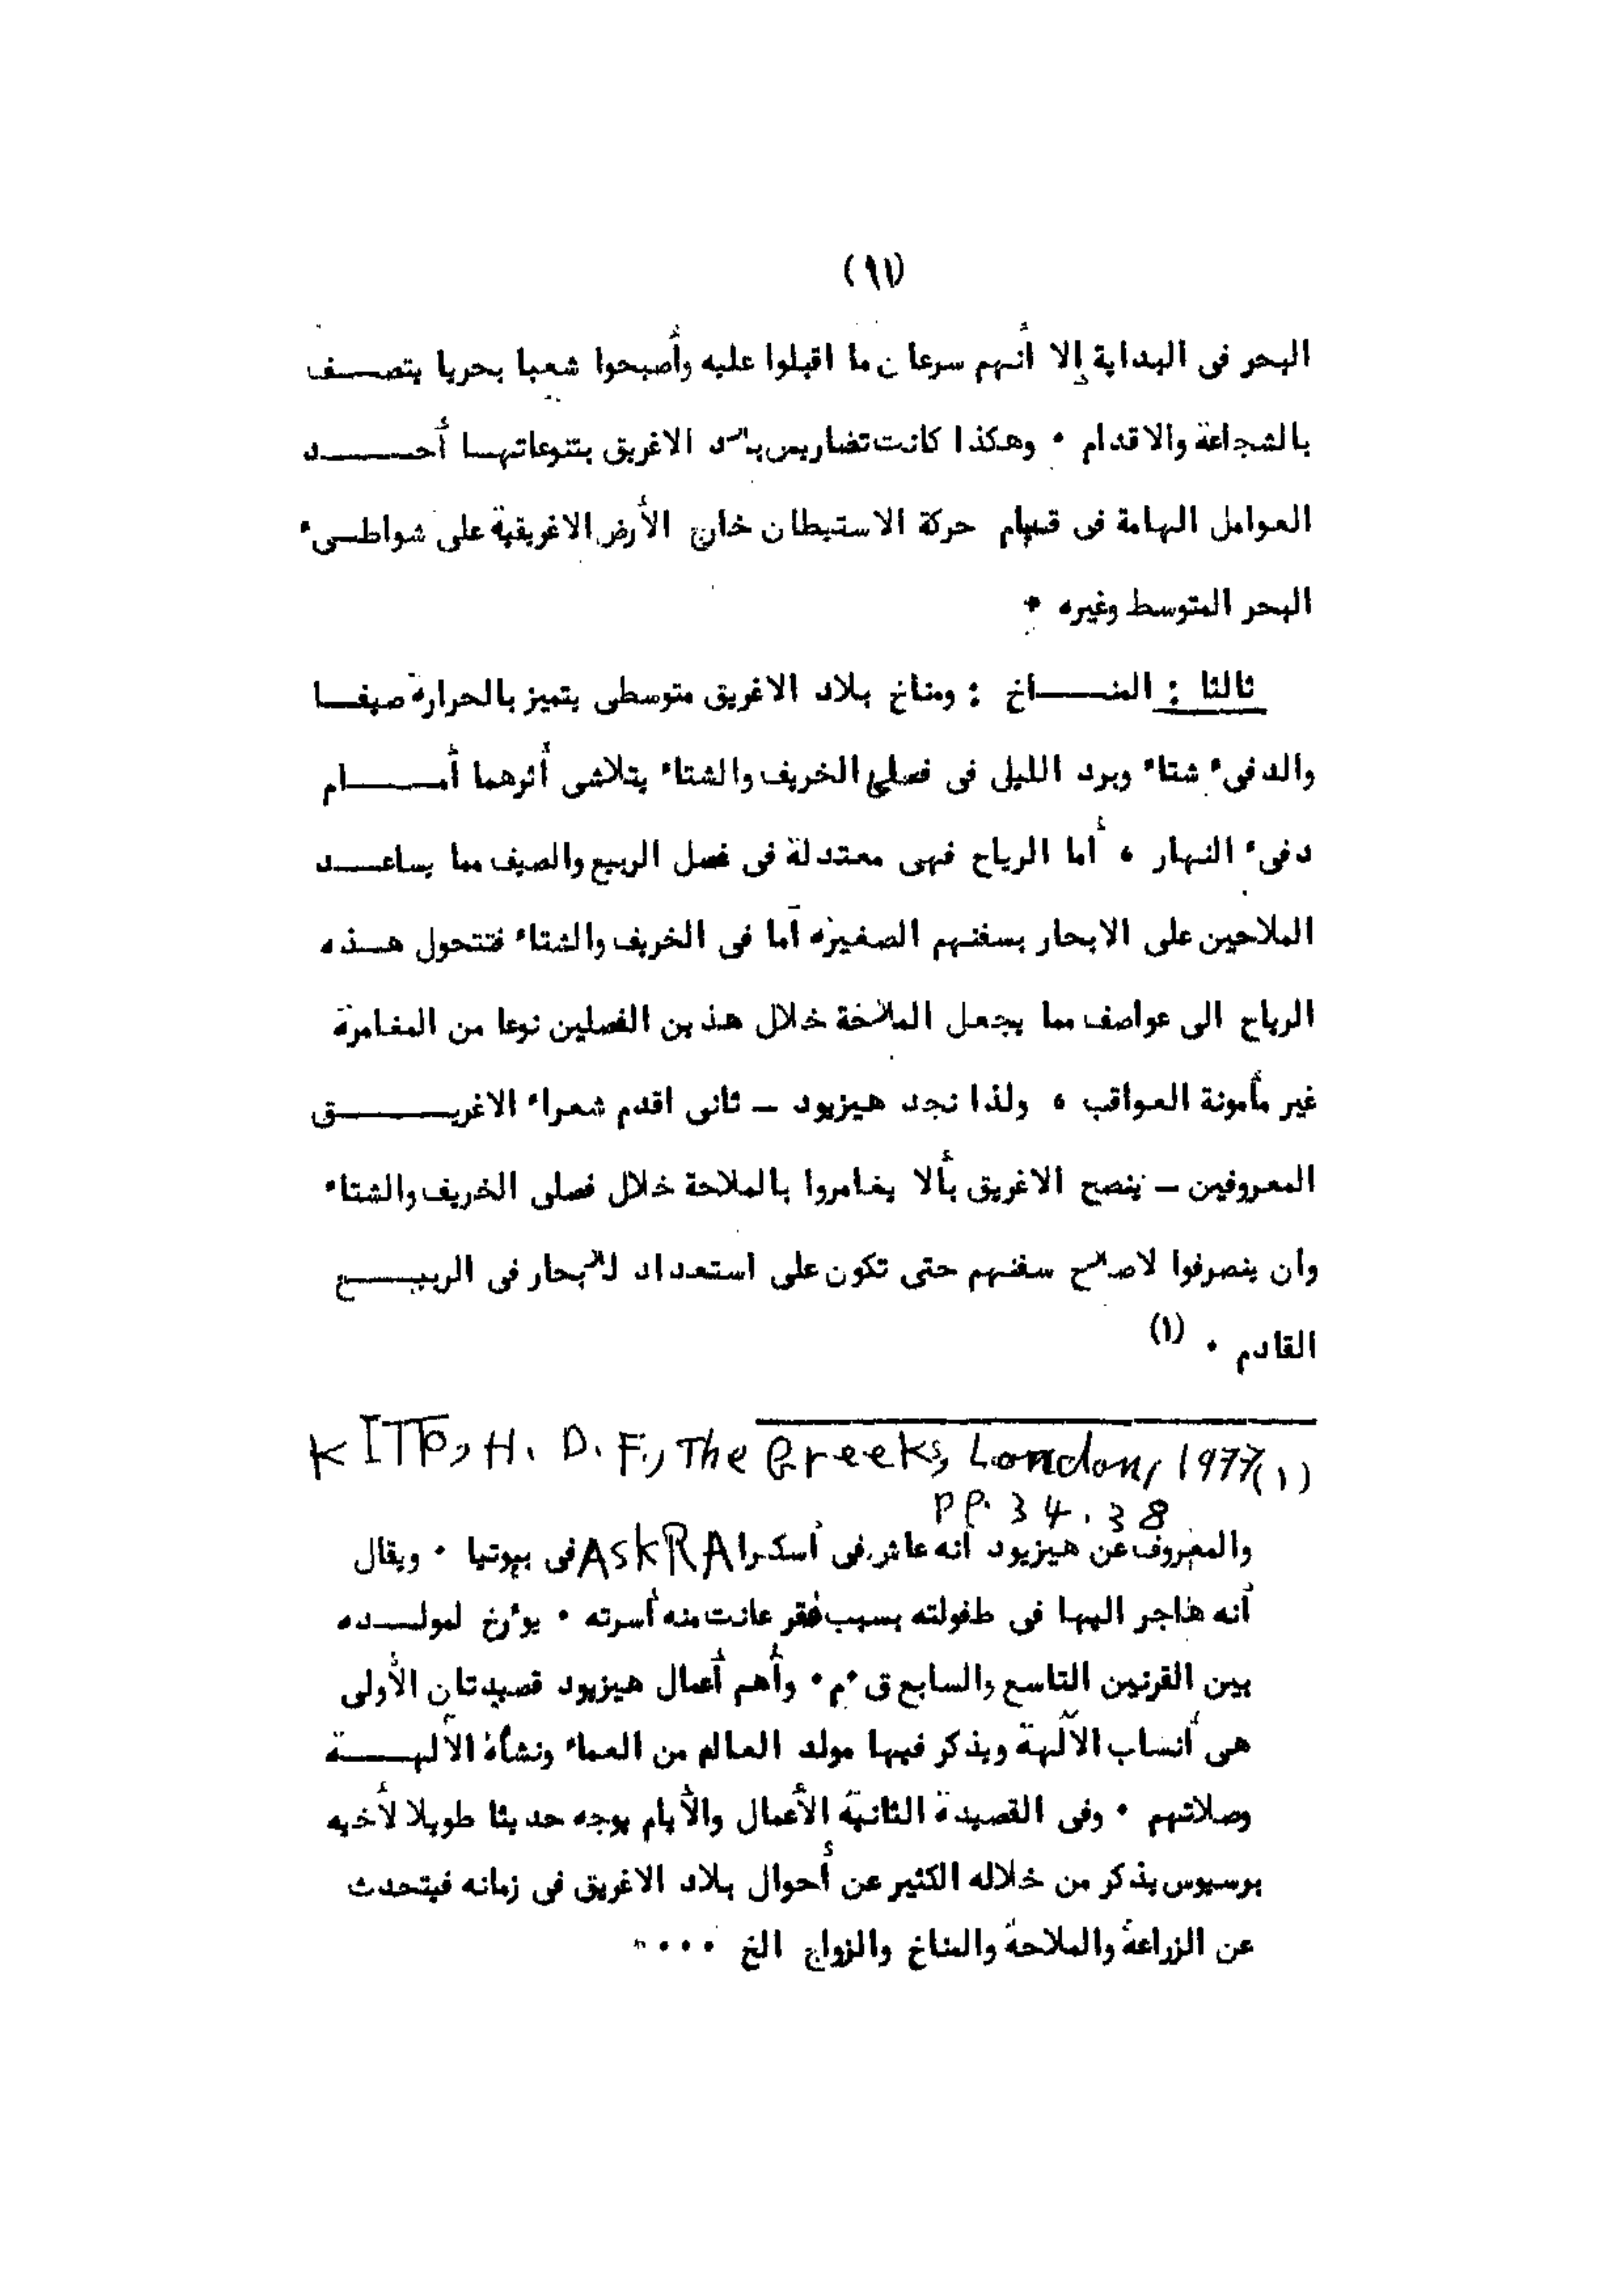 (٩١)
البحر فى البداية إلا أنهم سرعان ما اقبلوا عليه وأصبحوا شعبا بحريا يتصف
بالشجاعة والاقدام ٠ وهكذا كانت تضاريس بلاد الاغريق بتنوعاتها أحد
العوامل الهامة فى قيام حركة الاستيطان خارج الأرض الاغريقية على شواطىء
البحر المتوسط وغيره ٠
ثالثا : المناخ : ومناخ بلاد الاغريق متوسطى يتميز بالحرارة صيفا
والدفىء شتاء وبرد الليل فى فصلى الخريف والشتاء يتلاشى أثرهما أمام
دفىء النهار ، أما الرياح فهى معتدلة فى فصل الربيع والصيف مما يساعد
الملاحين على الابحار بسفنهم الصغيره أما فى الخريف والشتاء فتتحول هذه
الرياح الى عواصف مما يجعل الملاحة خلال هذين الفصلين نوعا من المغامرة
غير مأمونة العواقب ، ولذا نجد هيزيود – ثانى اقدم شعراء الاغريق
المعروفين – ينصح الاغريق بألا يغامروا بالملاحة خلال فصلى الخريف والشتاء
وان ينصرفوا لاصلاح سفنهم حتى تكون على استعداد للابحار فى الربيع
القادم ٠ (١)
KITTO, H. D. F., The Greeks, London, 1977 (١)
PP. 34. 38
والمعروف عن هيزيود أنه عاش فى أسكرا ASKRA فى بيوتيا ٠ ويقال
أنه هاجر اليها فى طفولته بسبب فقر عانت منه أسرته ٠ يؤرخ لمولده
بين القرنين التاسع والسابع ق٠م٠ وأهم أعمال هيزيود قصيدتان الأولى
هى أنساب الآلهة ويذكر فيها مولد العالم من العماء ونشأة الآلهة
وصلاتهم ٠ وفى القصيدة الثانية الأعمال والأيام يوجه حديثا طويلا لأخيه
برسيوس يذكر من خلاله الكثير عن أحوال بلاد الاغريق فى زمانه فيتحدث
عن الزراعة والملاحة والمناخ والزواج الخ ٠٠٠٠